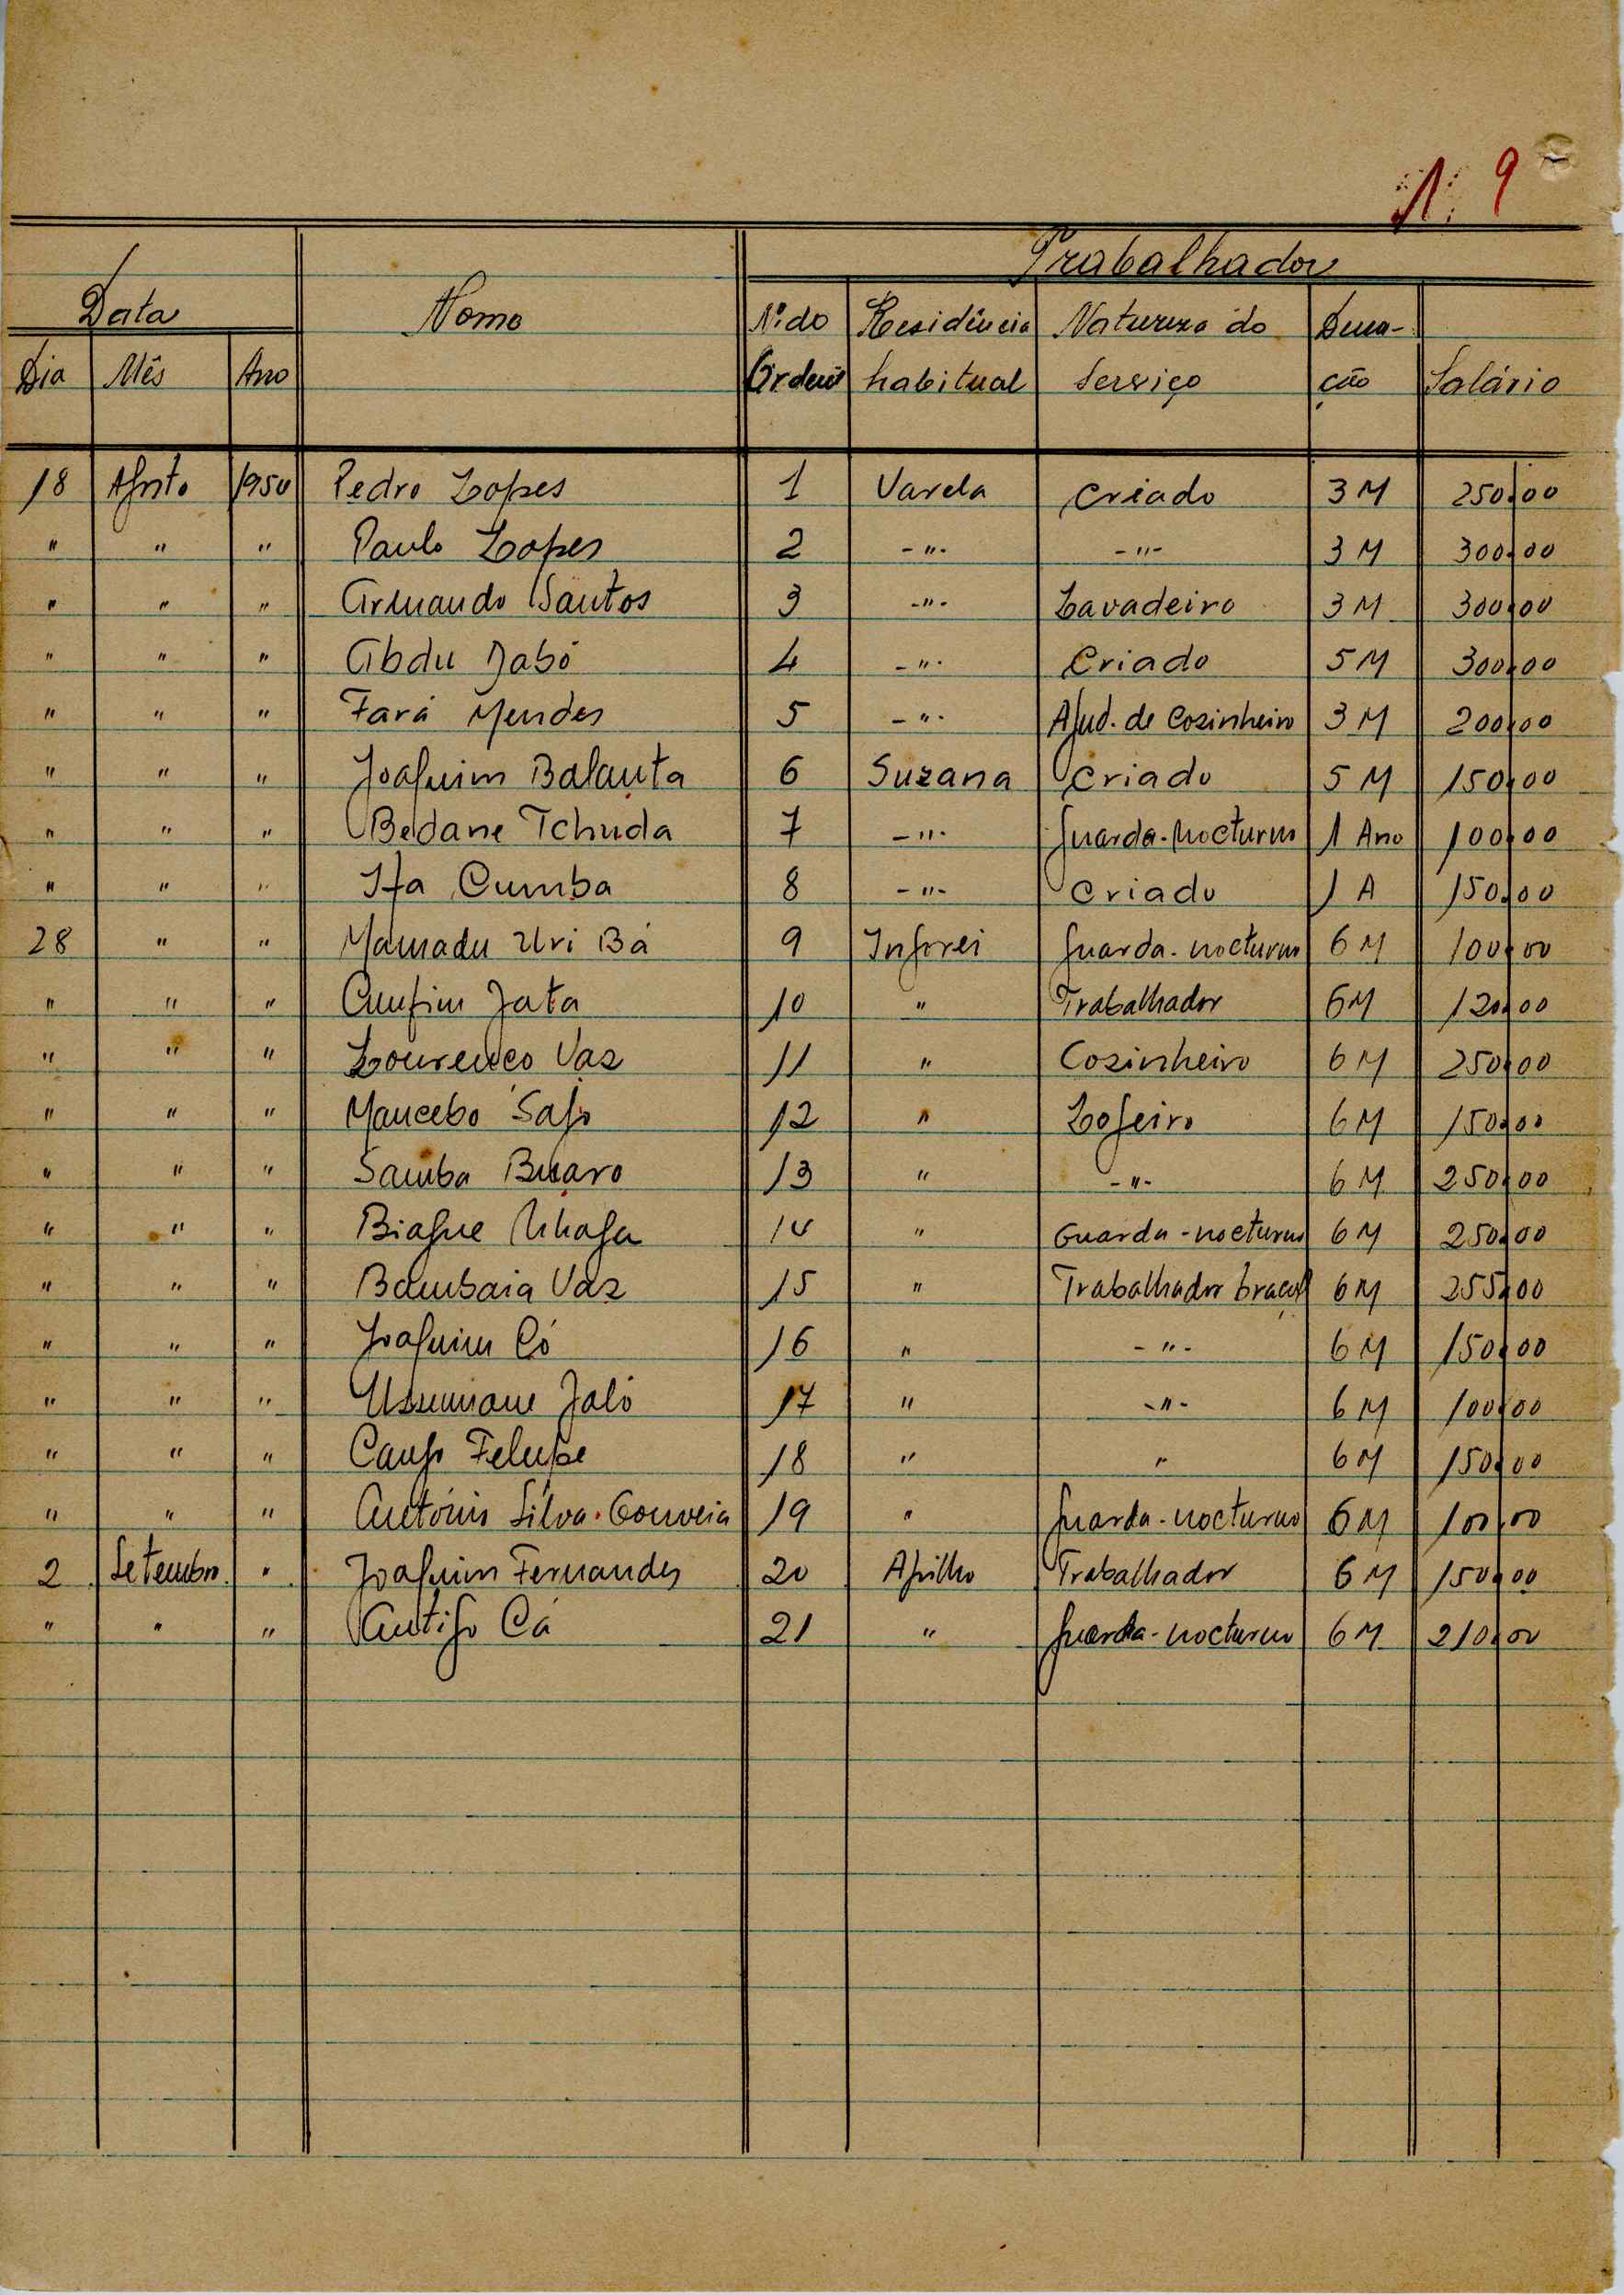 N. 9
Trabalhador
Data Nome Nº de Residência Natureza do Dura-
Dia Mês Ano Ordem habitual Serviço ção Salário
18 Agosto 1950 Pedro Lopes 1 Varela Criado 3 M 250,00
" " " Paulo Lopes 2 -"- -"- 3 M 300,00
" " " Armando Santos 3 -"- Lavadeiro 3 M 300,00
" " " Abdu Jabó 4 -"- Criado 5 M 300,00
" " " Fará Mendes 5 -"- Ajud. de Cozinheiro 3 M 200,00
" " " Joaquim Balanta 6 Suzana Criado 5 M 150,00
" " " Bedane Tchuda 7 -"- guarda-nocturno 1 Ano 100,00
" " " Ifa Cumba 8 -"- Criado 1 A 150,00
28 " " Mamadu Uri Bá 9 Ingorei guarda-nocturno 6 M 100,00
" " " Jata 10 " Trabalhador 6 M 120,00
" " " Lourenço Vaz 11 " Cozinheiro 6 M 250,00
" " " Mancebo Sago 12 " Lojeiro 6 M 150,00
" " " Samba Buaro 13 " -"- 6 M 250,00
" " " Biague Nhaga 14 " Guarda-nocturno 6 M 250,00
" " " Bambaia Vaz 15 " Trabalhador braçal 6 M 255,00
" " " Joaquim Có 16 " -"- 6 M 150,00
" " " Ussumane Jaló 17 " -"- 6 M 100,00
" " " Cango Felupe 18 " " 6 M 150,00
" " " António Silva Gouveia 19 " guarda-nocturno 6 M 100,00
2 Setembro " Joaquim Fernandes 20 Apilho Trabalhador 6 M 150,00
" " " Antigo Cá 21 " guarda-nocturno 6 M 210,00